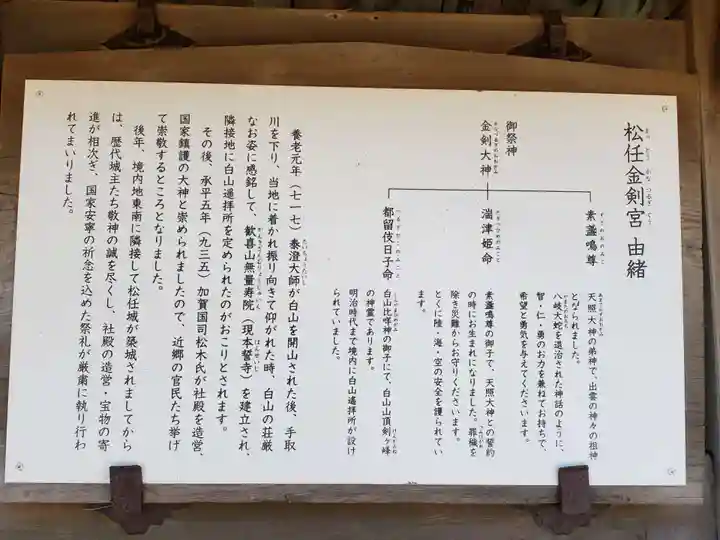 松任金剣宮 由緒
御祭神
金剣大神
素盞鳴尊
天照大神の弟神で、出雲の神々の祖神
となられました。
八岐大蛇を退治された神話のように、
智・仁・勇のお力を兼ねてお持ちで、
希望と勇気を与えてくださいます。
湍津姫命
素盞鳴尊の御子で、天照大神との誓約
の時にお生まれになりました。罪穢を
除き災難からお守りくださいます。
とくに陸・海・空の安全を護られてい
ます。
都留伎日子命
白山比咩神の御子にて、白山山頂剣ヶ峰
の神霊であります。
明治時代まで境内に白山遥拝所が設け
られていました。
養老元年（七一七）泰澄大師が白山を開山された後、手取
川を下り、当地に着かれ振り向きて仰がれた時、白山の荘厳
なお姿に感銘して、歓喜山無量寿院（現本誓寺）を建立され、
隣接地に白山遥拝所を定められたのがおこりとされます。
その後、承平五年（九三五）加賀国司松木氏が社殿を造営、
国家鎮護の大神と崇められましたので、近郷の官民たち挙げ
て崇敬するところとなりました。
後年、境内地東南に隣接して松任城が築城されましてから
は、歴代城主たち敬神の誠を尽くし、社殿の造営・宝物の寄
進が相次ぎ、国家安寧の祈念を込めた祭礼が厳粛に執り行わ
れてまいりました。